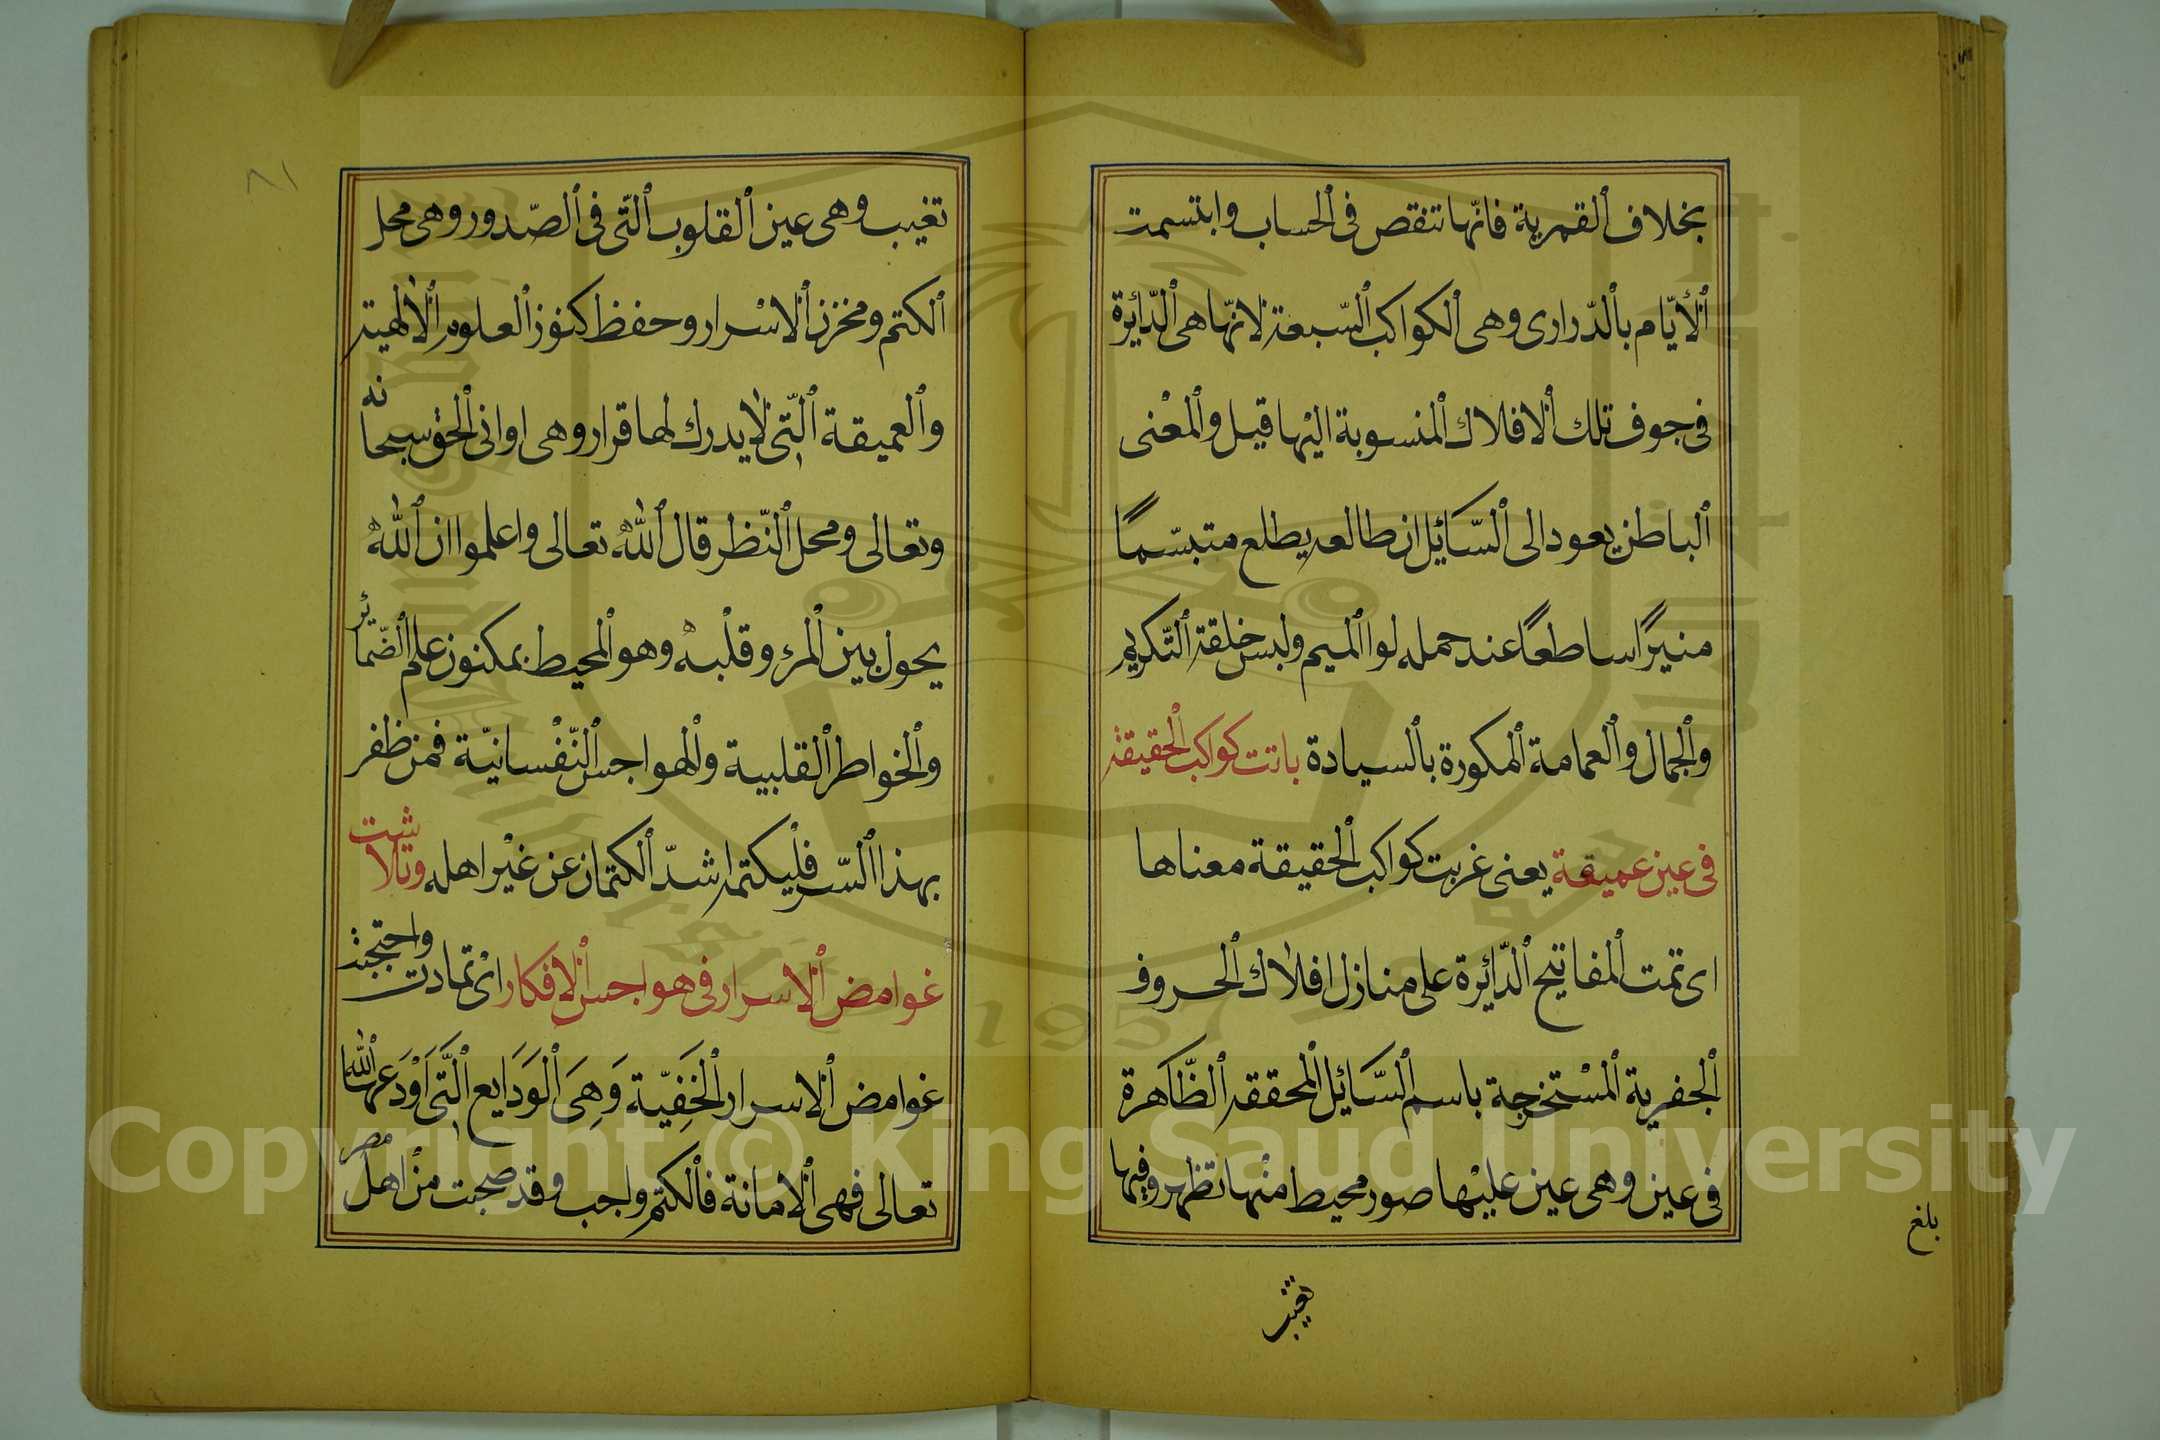 بخلاف القمرية فانّها تنقص فى الحساب وابتسمت
الأيّام بالدّرارى وهى الكواكب السّبعة لانّها هى الدّائرة
فى جوف تلك الافلاك المنسوبة اليْها قيل والمعْنى
الباطن يعود الى السّائل ان طالعه يطلع متبسّماً
منيرًا ساطعًا عند حمله لوا الميم ولبس خلقة التّكريم
والجمال والعمامة المكورة بالسيادة باتت كواكب الحقيقة
فى عين عميقة يعنى غربت كواكب الحقيقة معناها
اى تمت المفاتيح الدّائرة على منازل افلاك الحروف
الجفرية المسْتخرجة باسم السّائل المحققة الظّاهرة
فى عين وهى عين عليْها صور محيط منْها تظهر وفيها
تغيب
بلغ
٨١
تغيب وهى عين القلوب الّتى فى الصّدور وهى محل
الكتم ومخزن الاسْرار وحفظ كنوز العلوم الالهية
والعميقة الّتى لا يدرك لها قرار وهى اوانى الحق سبحانه
وتعالى ومحل النّظر قال اللّٰه تعالى واعلموا ان اللّٰه
يحول بين المرء وقلْبه وهو المحيط بمكنون علم الضّمائر
والخواطر القلبية والهواجس النّفْسانيّة فمن ظفر
بهذا السّر فلْيكتمه اشدّ الكتمان عن غيْر اهله وتلاشت
غوامض الاسرار فى هواجس الافكار اىْ تمادت واحتجبت
غوامض الاسرار الخَفِيّة وَهِىَ الوَدَايع الّتى اَوْدَعها اللّٰه
تعالى فهى الامانة فالكتم واجب وقد صحبت منْ اهل مصر
Copyright © King Saud University
1957